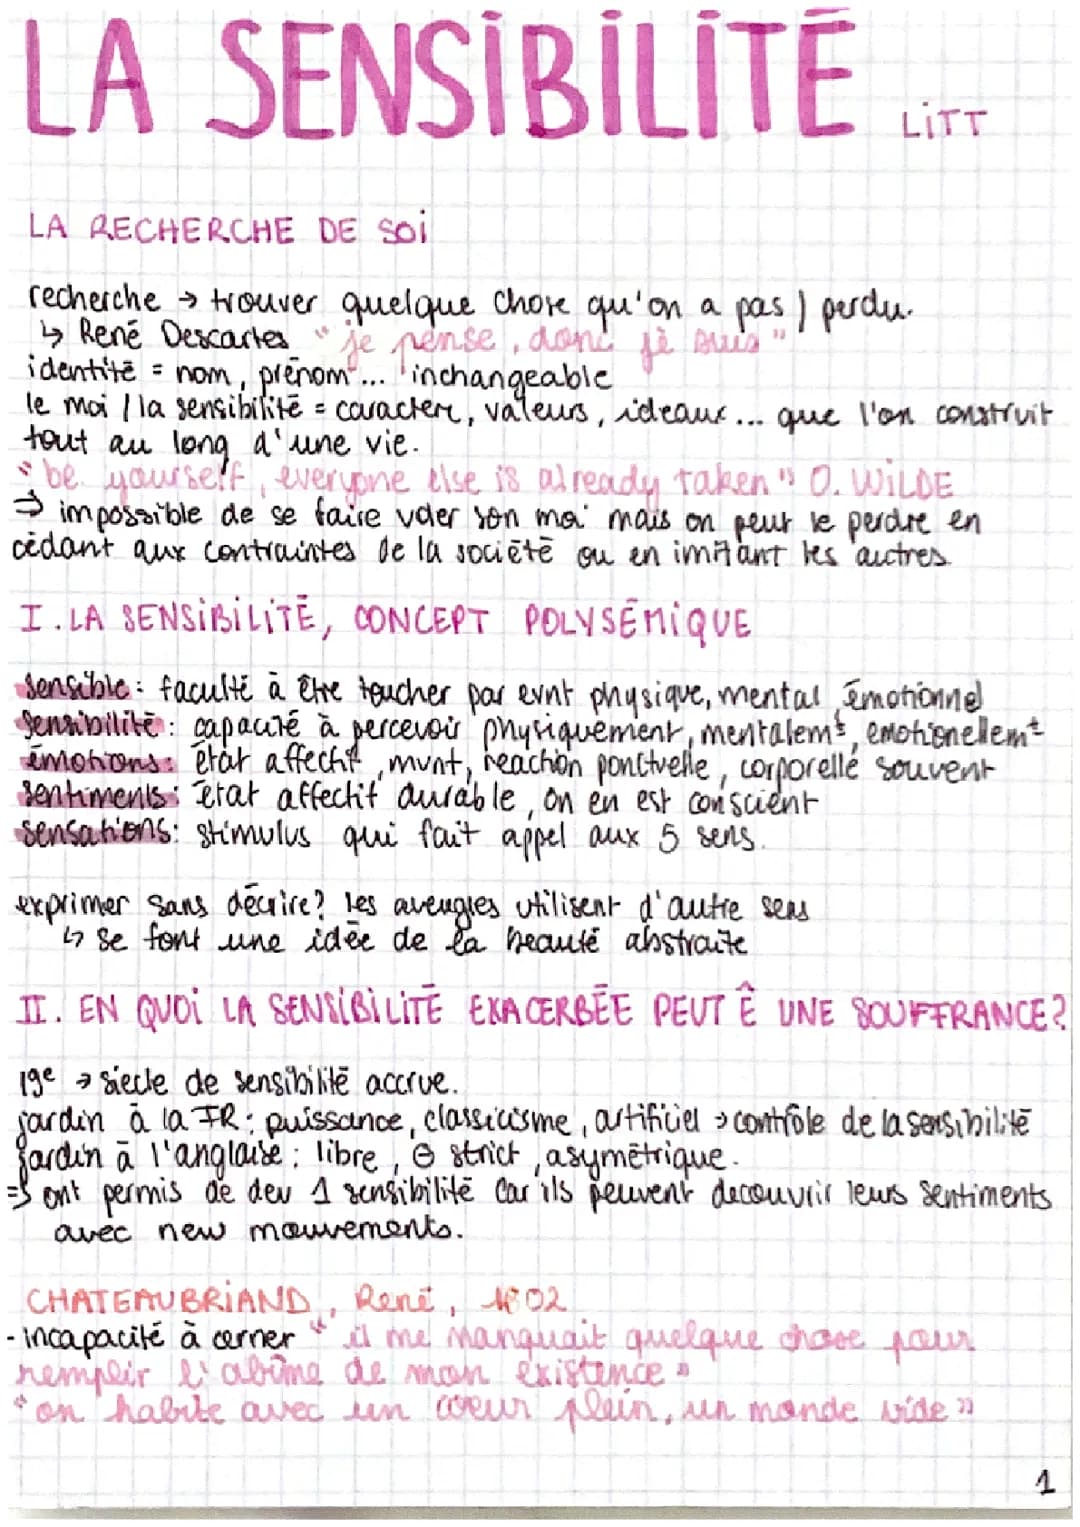 LA SENSIBILITÉ LITT
LA RECHERCHE DE SOI
recherche → trouver quelque chose qu'on a pas / perdu.
↳ René Descartes "je pense, donc je suis"
identité = nom, prénom... inchangeable
le moi / la sensibilité = caractere, valeurs, ideaux... que l'on construit
tout au long d'une vie.
"be yourself, everyone else is already taken" O. WILDE
⇒ impossible de se faire voler son moi mais on peut le perdre en
cédant aux contraintes de la société ou en imitant les autres
I. LA SENSIBILITÉ, CONCEPT POLYSÉMIQUE
sensible : faculté à être toucher par evnt physique, mental, émotionnel
sensibilité : capacité à percevoir physiquement, mentalemt, emotionellemt
émotions : état affectif, mvnt, réaction ponctuelle, corporelle souvent
sentiments : état affectif durable, on en est conscient
sensations : stimulus qui fait appel aux 5 sens.
exprimer sans décrire? les aveugles utilisent d'autre sens
↳ se font une idée de la beauté abstraite
II. EN QUOI LA SENSIBILITÉ EXACERBÉE PEUT Ê UNE SOUFFRANCE?
19e → siecle de sensibilité accrue.
jardin à la FR : puissance, classicisme, artificiel → contrôle de la sensibilité
jardin à l'anglaise : libre, ⊖ strict, asymétrique.
⇒ ont permis de dev 1 sensibilité car ils peuvent decouvrir leurs sentiments
avec new mouvements.
CHATEAUBRIAND, René, 1802
- incapacité à cerner "il me manquait quelque chose pour
remplir l'abîme de mon existence"
"on habite avec un cœur plein, un monde vide"
1